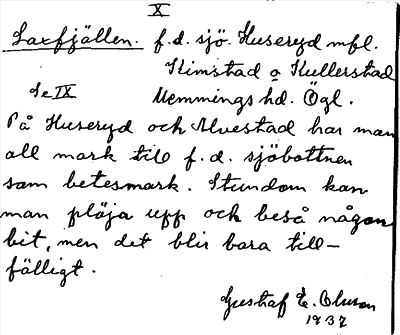 X
Saxfjällen. f.d. sjö. Huseryd mfl.
Kimstad o Kullerstad
Se IX Memmings hd. Ögl.
På Huseryd och Alvestad har man
all mark till f.d. sjöbottnen
som betesmark. Stundom kan
man plöja upp och beså någon
bit, men det blir bara till-
fälligt.
Gustaf E. Olsson
1937